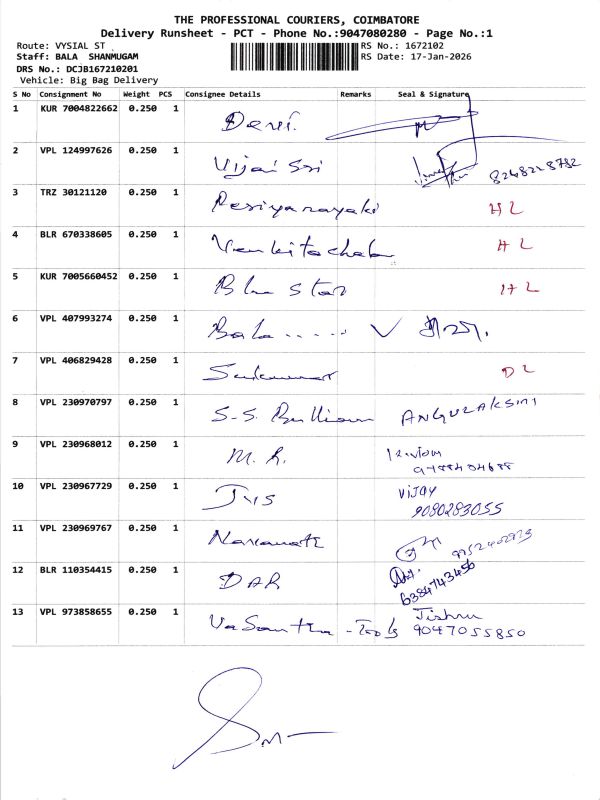 THE PROFESSIONAL COURIERS, COIMBATORE
Delivery Runsheet - PCT - Phone No.:9047080280 - Page No.:1
Route: VYSIAL ST
RS No.: 1672102
Staff: BALA SHANMUGAM
RS Date: 17-Jan-2026
DRS No.: DCJB167210201
Vehicle: Big Bag Delivery
S No Consignment No Weight PCS Consignee Details Remarks Seal & Signature
1 KUR 7004822662 0.250 1 Devi.
2 VPL 124997626 0.250 1 Vijai Sri 8248228782
3 TRZ 30121120 0.250 1 Periyanayaki HL
4 BLR 670338605 0.250 1 Venkitachala HL
5 KUR 7005660452 0.250 1 Blue Star HL
6 VPL 407993274 0.250 1 Bala
7 VPL 406829428 0.250 1 DL
8 VPL 230970797 0.250 1 S.S. Bullion
9 VPL 230968012 0.250 1 M.R.
10 VPL 230967729 0.250 1 VIJAY
9080283055
11 VPL 230969767 0.250 1
12 BLR 110354415 0.250 1 DAR
6384743456
13 VPL 973858655 0.250 1 Vasantha - Tools
9047055850